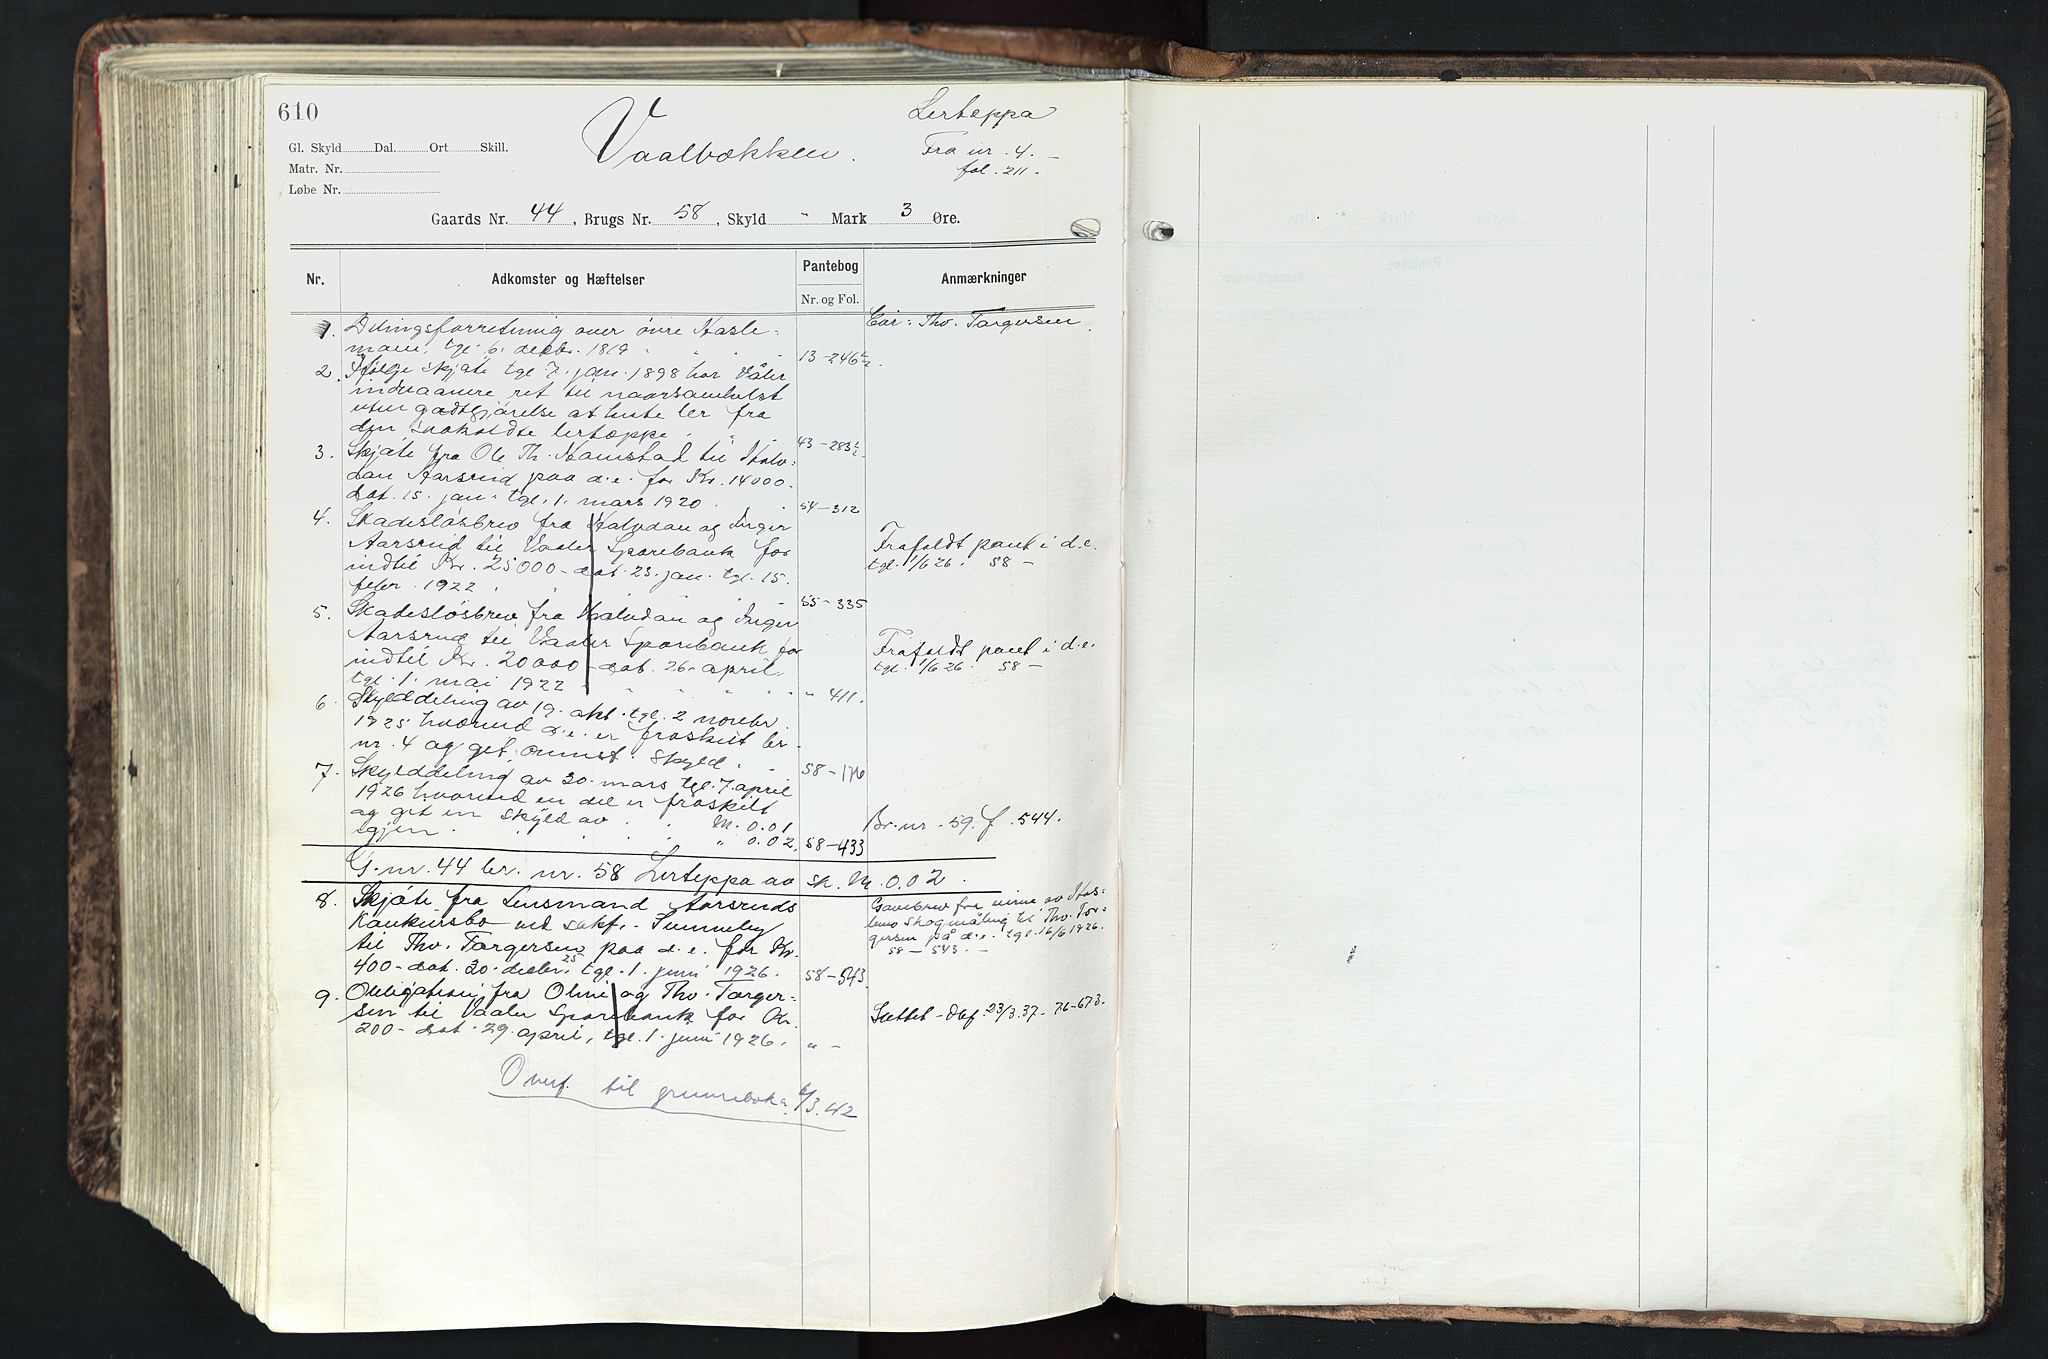 610
Vaalbækken.
Lerteppa
Fra nr. 4.
fol. 211.
Gl. Skyld Dal. Ort Skill.
Matr. Nr.
Løbe Nr.
Gaards Nr. 44, Brugs Nr. 58, Skyld " Mark 3 Øre.
Nr. Adkomster og Hæftelser Pantebog Anmærkninger
Nr. og Fol.
1. Delingsforretning over övre Hasle-
Eier: Thv. Torgersen.
moen, tgl. 6. decbr. 1819 13-246
2. Ifølge skjøte tgl 7. jan. 1898 har Våler
indvaanere ret til naarsomhelst
uten godtgjørelse at hente ler fra
den lertæppe 43-283
3. Skjøte fra Ole Th. Namstad til Halv-
dan Aarsrud paa d.e. for Kr. 14000.
dat. 15. jan. tgl. 1. mars 1920. 54-312
4. Skadesløsbrev fra Halvdan og Inger
Aarsrud til Vaaler Sparebank for
indtil Kr. 25000 - dat. 23. jan. tgl. 15.
febr. 1922 55-335
Frafaldt pant i d.e.
tgl. 1/6 26. 58 -
5. Skadesløsbrev fra Halvdan og Inger
Aarsrud til Vaaler Sparebank for
indtil Kr. 20000 - dat. 26. april
tgl. 1. mai 1922 " 411.
Frafaldt pant i d.e.
tgl. 1/6 26. 58 -
6. Skylddeling av 19. okt. tgl. 2 novebr.
1925 hvorved d.e. er fraskilt br.
nr. 4 og get. skyld 58-176
7. Skylddeling av 30. mars tgl. 7. april
1926 hvorved en del er fraskilt
og git en skyld av M. 0.01
Br. nr. 59. f. 544.
igjen " 0.02. 58-433
G. nr. 44 br. nr. 58 Lerteppa av sk. M. 0.02.
8. Skjøte fra Lensmand Aarsruds
Konkursbo ved sakf. Sunneby
til Thv. Torgersen paa d.e. for Kr.
400 - dat. 20. decbr. 25 tgl. 1. juni 1926. 58-543.
Gavebrev fra eierne av Has-
lemo Skogmåling til Thv. Tor-
gersen på d.e. tgl. 16/6 1926.
58 - 543. -
9. Obligation fra Oline og Thv. Torger-
sen til Vaaler Sparebank for Kr.
200 - dat. 29. april, tgl. 1. juni 1926. " -
Slettet - dgf. 23/3.37 - 76-673.
Overf. til grunnboka 6/3.42